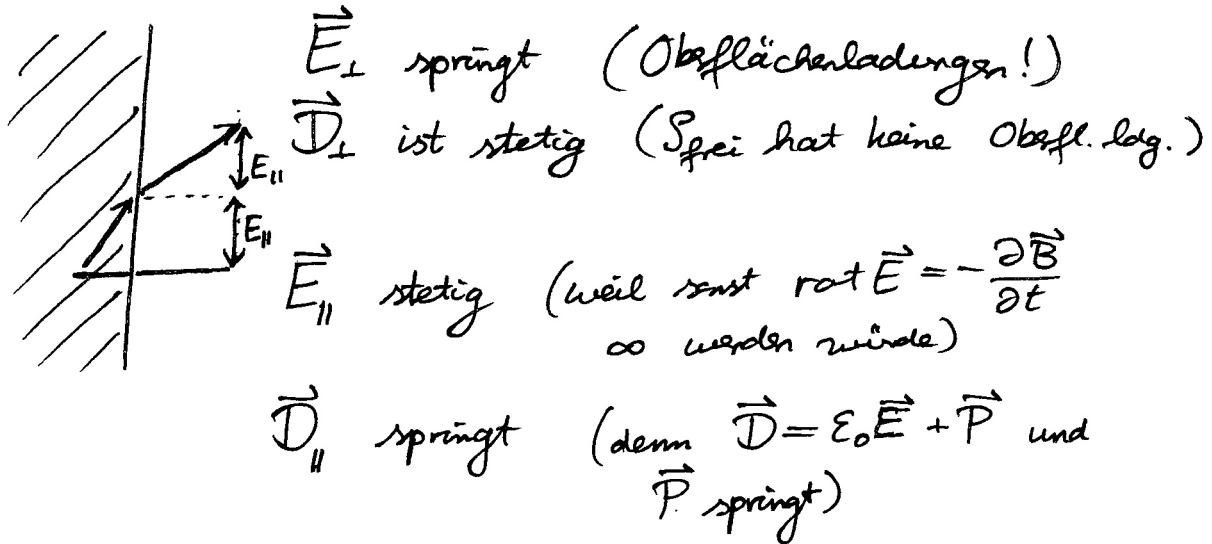 E⃗⊥ springt (Oberflächenladungen!)
D⃗⊥ ist stetig (ρfrei hat keine Oberfl. ldg.)
E∥
E∥
E⃗∥ stetig (weil sonst rot E⃗ = -∂B⃗/∂t
∞ werden würde)
D⃗∥ springt (denn D⃗ = ε₀E⃗ + P⃗ und
P⃗ springt)